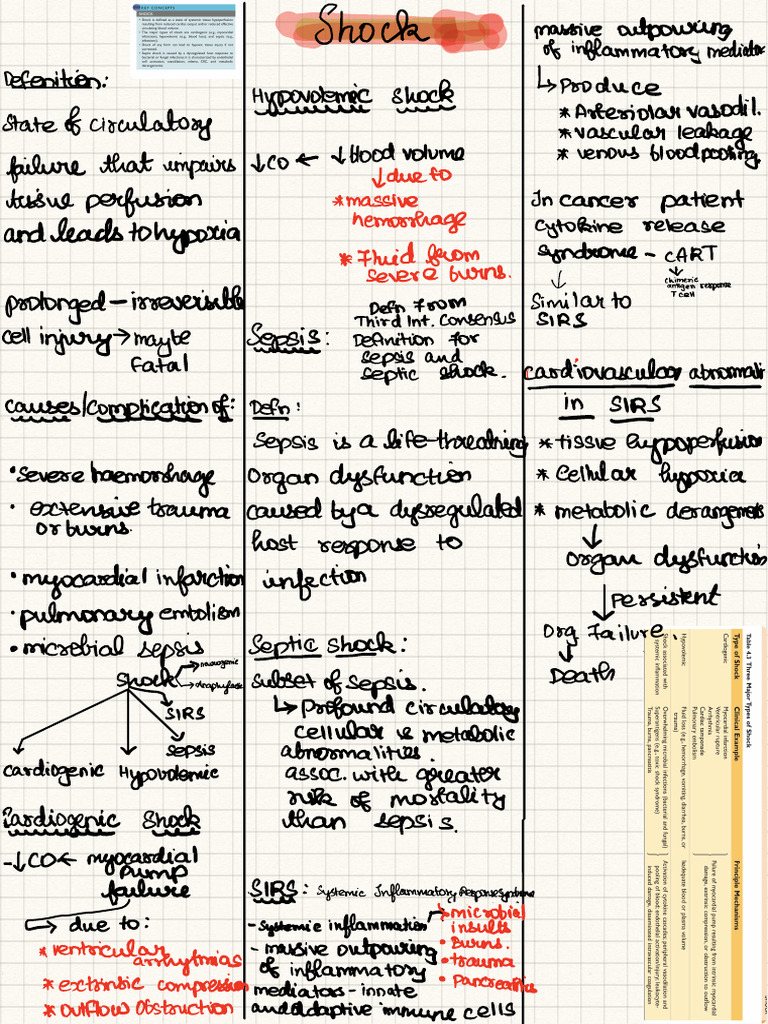 Shock
KEY CONCEPTS
SHOCK
Defenition:
State of circulatory
failure that impairs
tissue perfusion
and leads to hypoxia
prolonged – irreversible
cell injury → maybe
Fatal
causes/complication of:
• severe haemorrhage
• extensive trauma
or burns.
• myocardial infarction
• pulmonary embolism
• microbial sepsis
Shock
SIRS
sepsis
cardiogenic Hypovolemic
Cardiogenic Shock
- ↓CO ← myocardial
pump
failure
→ due to:
* ventricular
arrhythmias
* extrinsic compression
* outflow obstruction
Hypovolemic Shock
↓CO ← ↓blood volume
↓ due to
* massive
hemorrhage
* Fluid from
severe burns.
Sepsis: Defn From
Third Int. Consensus
Definition for
sepsis and
septic shock.
Defn:
Sepsis is a life-threatning
organ dysfunction
caused by a dysregulated
host response to
infection
Septic shock:
subset of sepsis.
↳ Profound circulatory
cellular & metabolic
abnormalities.
assoc. with greater
risk of mortality
than sepsis.
SIRS: Systemic Inflammatory Response Syndrome
- Systemic inflammation
• microbial
insults
• Burns.
• trauma
• Pancreatitis
- massive outpouring
of inflammatory
mediators - innate
and adaptive immune cells
massive outpouring
of inflammatory mediator
↳ Produce
* Arteriolar vasodil.
* vascular leakage
* venous blood pooling
In cancer patient
cytokine release
syndrome - CART
chimeric
antigen response
T cell
Similar to
SIRS
cardiovascular abnormali
in SIRS
* tissue hypoperfusion
* Cellular hypoxia
* metabolic derangements
↓
organ dysfunction
↓ Persistent
Org Failure.
↓
Death
Table 4.3 Three Major Types of Shock
Type of Shock Clinical Example Principle Mechanisms
Cardiogenic
Myocardial infarction
Ventricular rupture
Arrhythmia
Cardiac tamponade
Pulmonary embolism
Failure of myocardial pump resulting from intrinsic myocardial
damage, extrinsic compression, or obstruction to outflow
Hypovolemic
Fluid loss (e.g., hemorrhage, vomiting, diarrhea, burns, or
trauma)
Inadequate blood or plasma volume
Shock associated with
systemic inflammation
Overwhelming microbial infections (bacterial and fungal)
Superantigens (e.g., toxic shock syndrome)
Trauma, burns, pancreatitis
Activation of cytokine cascades; peripheral vasodilation and
pooling of blood; endothelial activation/injury; leukocyte-
induced damage, disseminated intravascular coagulation